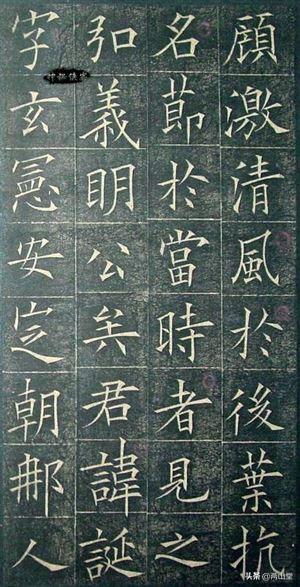 顧激清風於後葉抗
名節於當時者見之
弘義明公矣君諱誕
字玄憲安定朝那人
头条 @两山堂